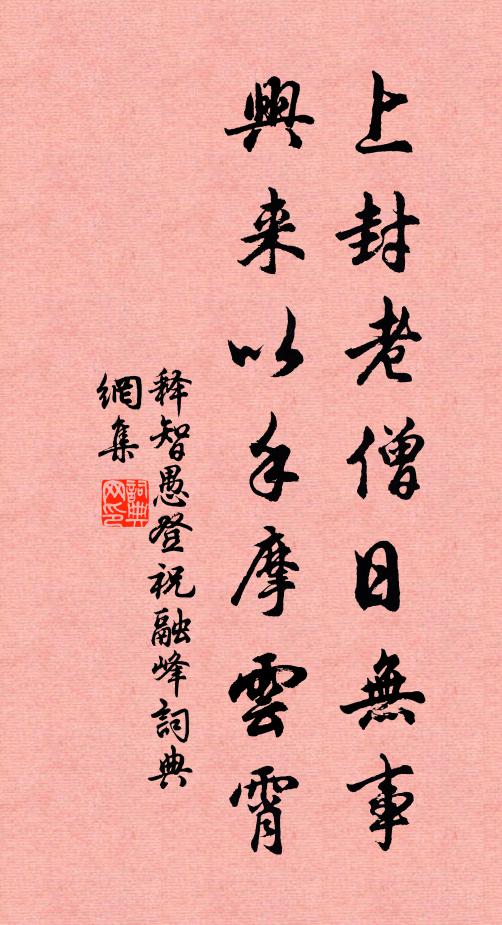 上封老僧日無事
興来以手摩雲霄
释智愚登祝融峰詞典
網集
詞典
网印